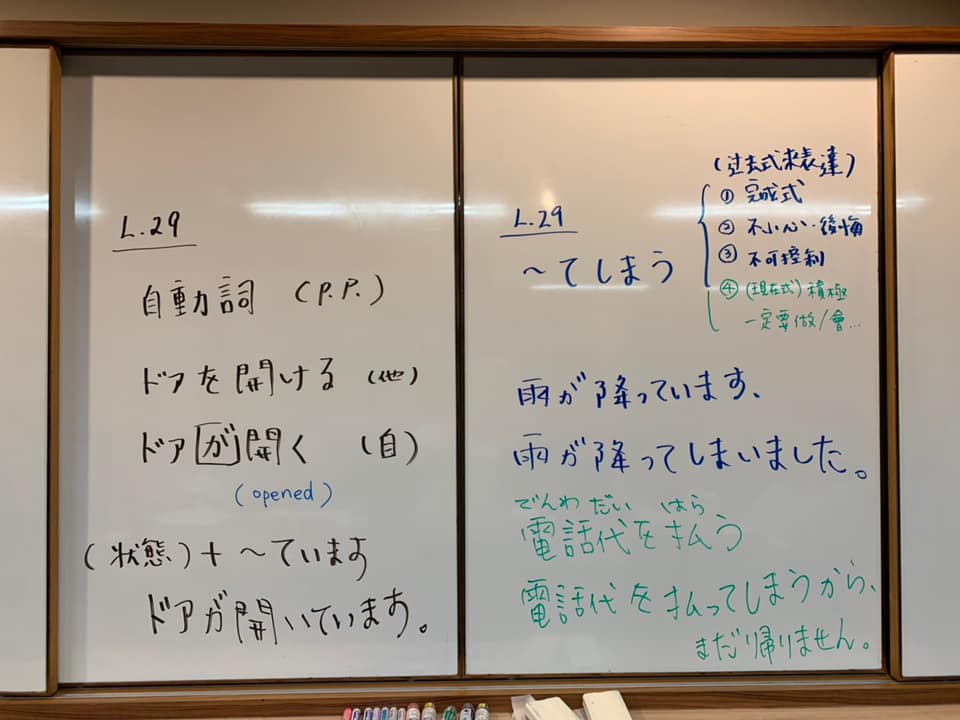 L.29
自動詞 (P.P.)
ドアを開ける (他)
ドアが開く (自)
(opened)
(状態)+〜ています
ドアが開いています。
L.29
〜てしまう
(过去式来表達)
① 完成式
② 不小心・後悔
③ 不可控制
④ (現在式) 積極
一定要做/會…
雨が降っています、
雨が降ってしまいました。
でんわ だい はら
電話代を払う
電話代を払ってしまうから、
まだ帰りません。